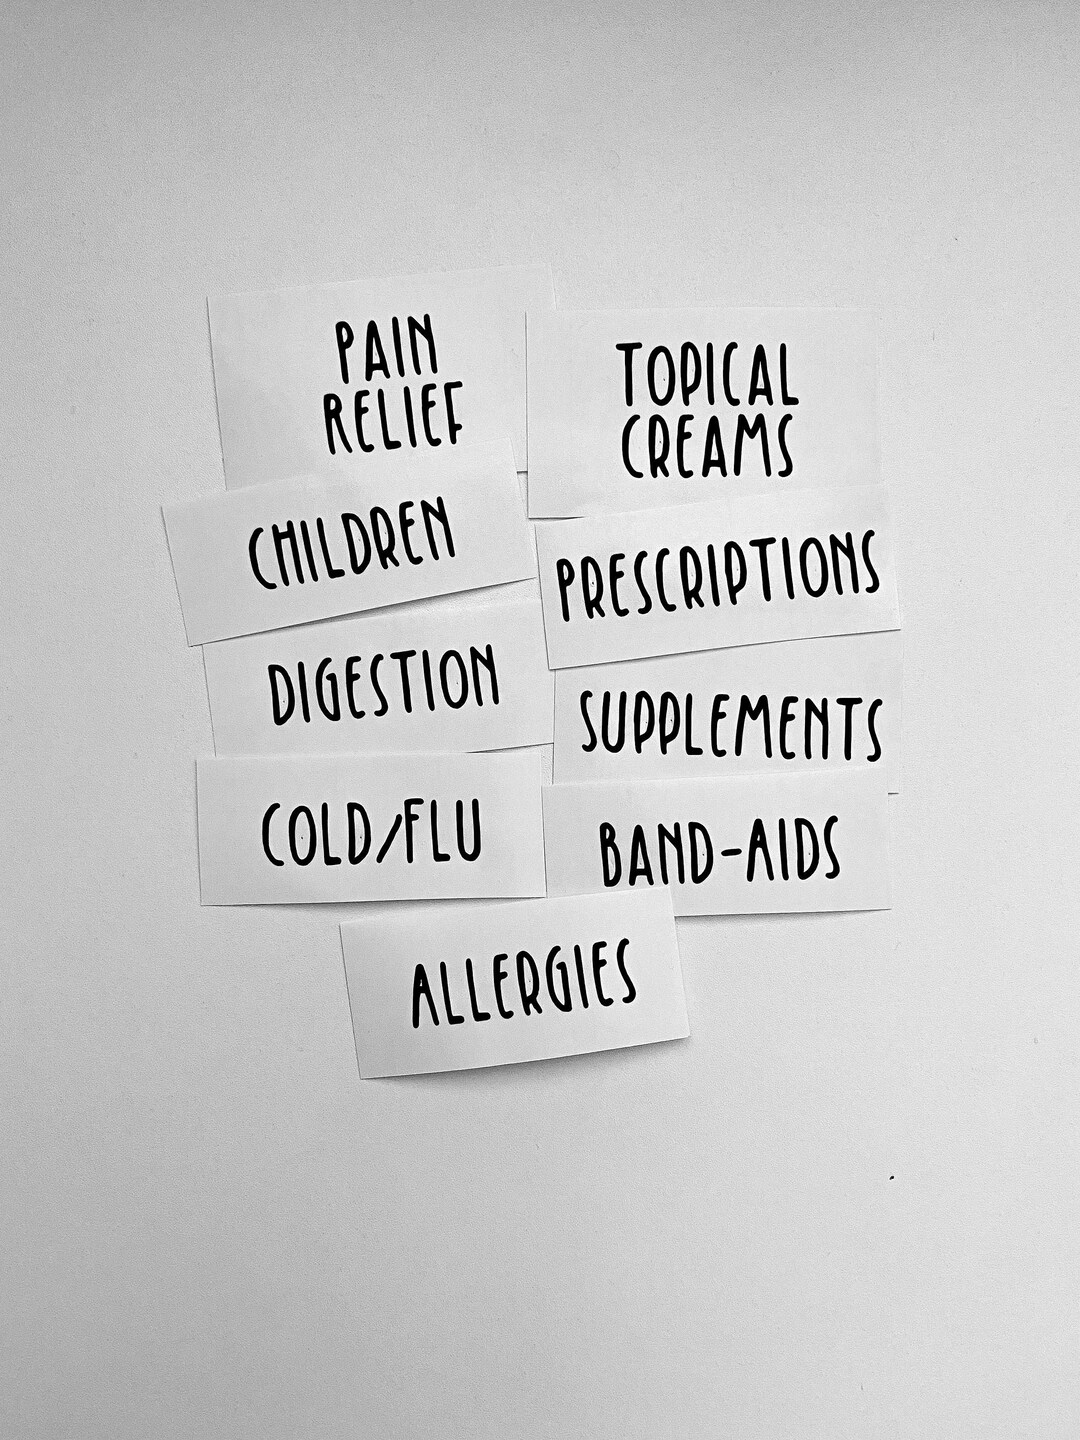 PAIN
RELIEF
TOPICAL
CREAMS
CHILDREN
PRESCRIPTIONS
DIGESTION
SUPPLEMENTS
COLD/FLU
BAND-AIDS
ALLERGIES